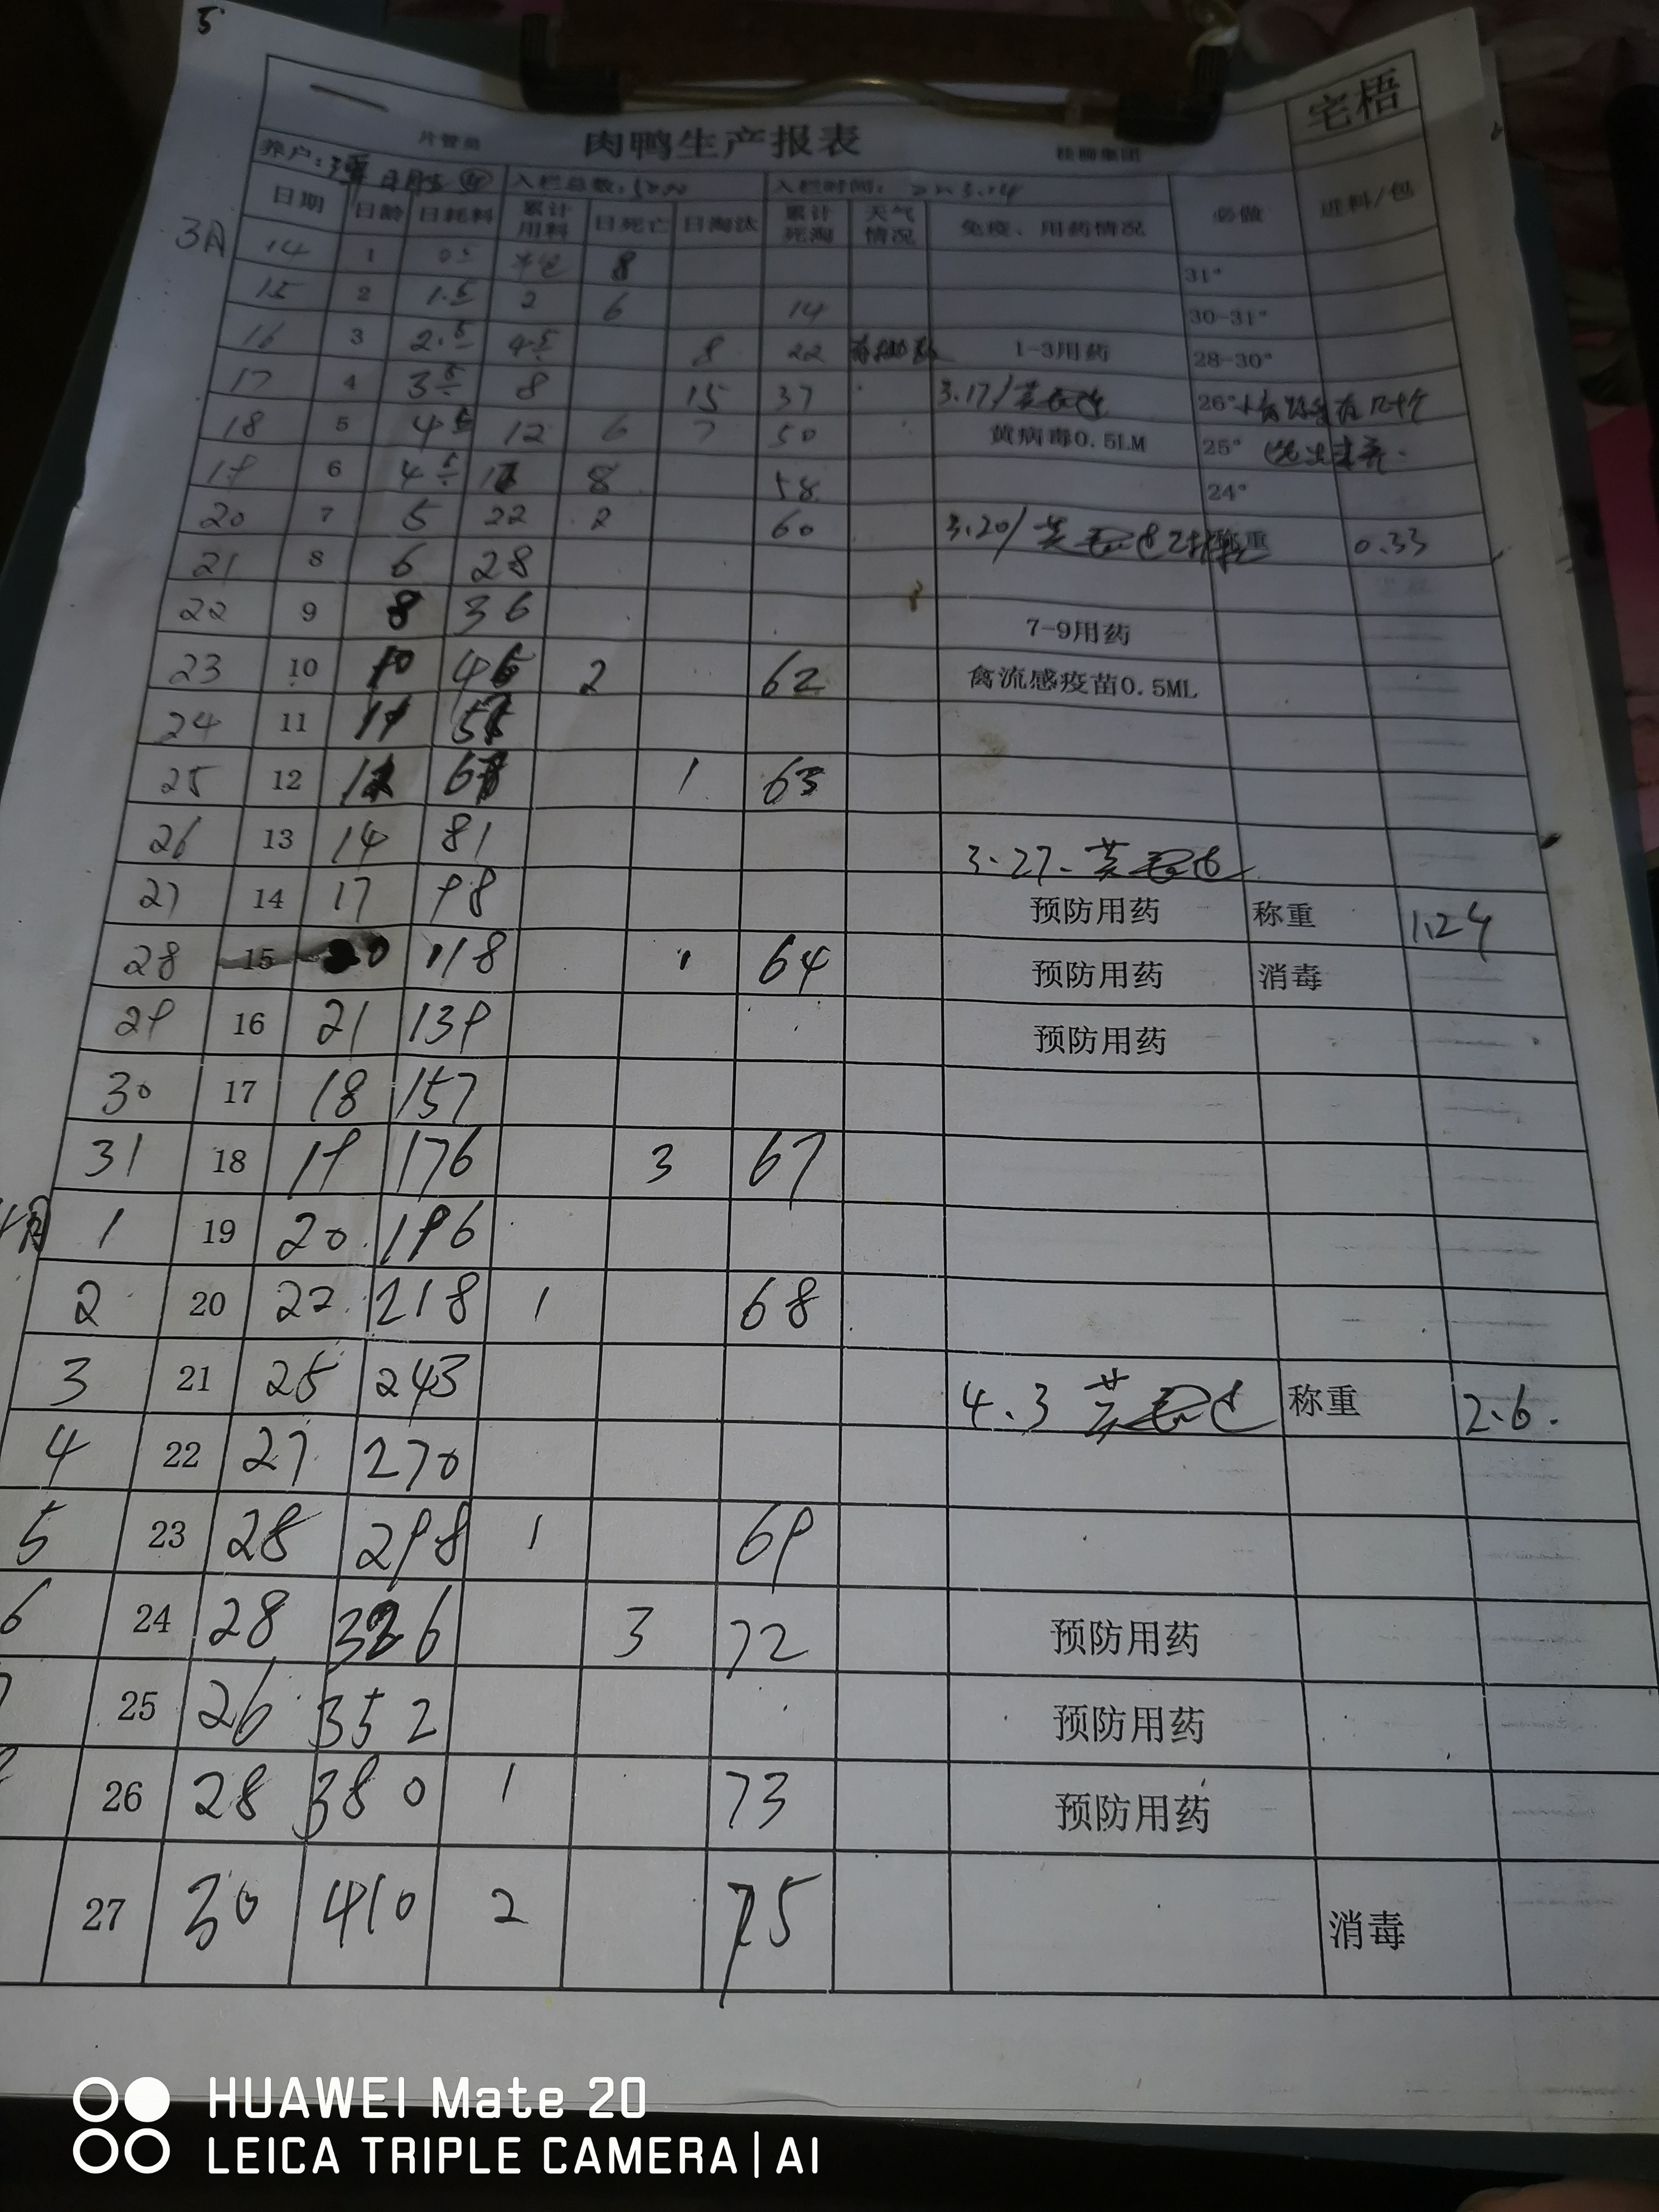 5
宅梧
片管员 肉鸭生产报表 桂柳集团
养户: 入栏总数: 5000 入栏时间: 3.14
日期 日龄 日耗料 累计用料 日死亡 日淘汰 累计死淘 天气情况 免疫、用药情况 必做 进料/包
3月 14 1 0.5 8 31°
15 2 1.5 2 6 14 30-31°
16 3 2.5 4.5 8 22 1-3用药 28-30°
17 4 3.5 8 15 37 3.17/ 26°
18 5 4.5 12 6 7 50 黄病毒0.5LM 25°
19 6 4.5 17 8 58 24°
20 7 5 22 2 60 3.20/ 称重 0.33
21 8 6 28
22 9 8 36 7-9用药
23 10 10 46 2 62 禽流感疫苗0.5ML
24 11 11 57
25 12 1 63
26 13 14 81 3.27.
27 14 17 98 预防用药 称重 1.24
28 15 20 118 1 64 预防用药 消毒
29 16 21 139 预防用药
30 17 18 157
31 18 19 176 3 67
4月 1 19 20 196
2 20 22 218 1 68
3 21 25 243 4.3 称重 2.6.
4 22 27 270
5 23 28 298 1 69
6 24 28 326 3 72 预防用药
25 26 352 预防用药
26 28 380 1 73 预防用药
27 30 410 2 75 消毒
HUAWEI Mate 20
LEICA TRIPLE CAMERA | AI